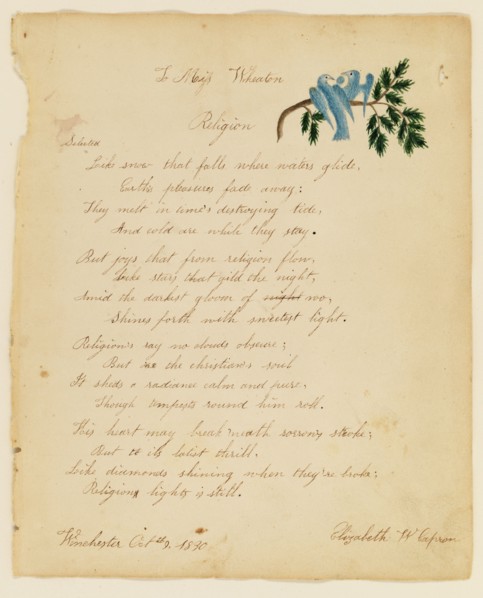 To Miss Wheaton
Religion
Selected
Like snow that falls where waters glide,
Earths pleasures fade away:
They melt in time's destroying tide,
And cold are while they stay.
But joys that from religion flow,
Like stars that gild the night,
Amid the darkest gloom of night wo,
Shines forth with sweetest light.
Religion's ray no clouds obscure;
But the christian's soul
It sheds a radiance calm and pure.
Though tempests round him roll.
His heart may break 'neath sorrow's stroke;
But to its latest thrill,
Like diamonds shining when they're broke;
Religions light is still.
Winchester Oct 1830
Elizabeth W Capron